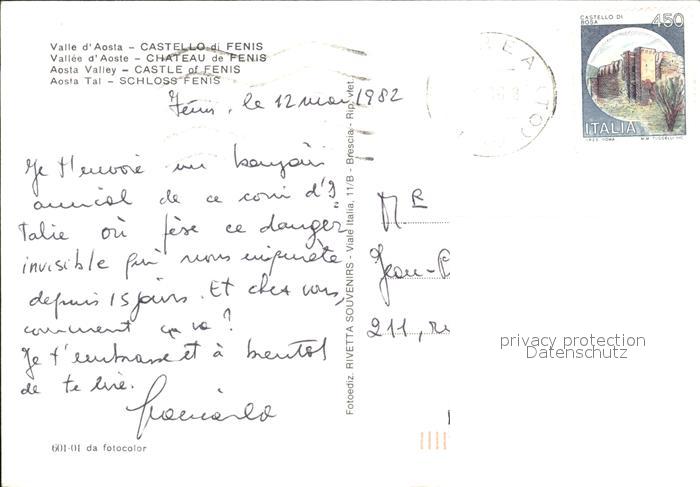 Valle d'Aosta – CASTELLO di FENIS
Vallée d'Aoste – CHATEAU de FENIS
Aosta Valley – CASTLE of FENIS
Aosta Tal – SCHLOSS FENIS
Fénis, le 12 mai 1982
Je t'envoie un bonjour
amical de ce coin d'I
talie où pèse ce danger
invisible qui nous inquiète
depuis 15 jours. Et chez vous,
comment ça va ?
Je t'embrasse et à bientôt
de te lire.
601-01 da fotocolor
Fotoediz. RIVETTA SOUVENIRS - Viale Italia, 11/B - Brescia - Rip. viet.
CASTELLO DI
ROSA
450
ITALIA
I.P.Z.S. ROMA
(TO)
MR
Jean-
211, ru
privacy protection
Datenschutz